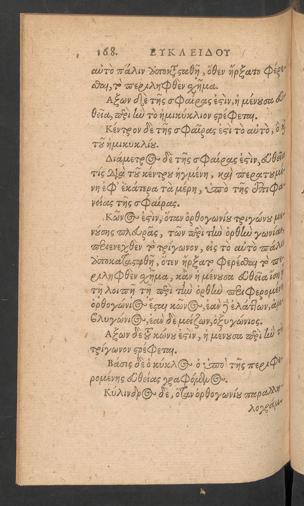 168. ΕΥΚΛΕΙΔΟΥ
αὐτὸ πάλιν ἀποκατασταθῇ, ὅθεν ἤρξατο φέρε-
σθαι, τὸ περιληφθὲν σχῆμα.
Αξων δὲ τῆς σφαίρας ἐστὶν, ἡ μένουσα εὐ-
θεῖα, περὶ ἣν τὸ ἡμικύκλιον στρέφεται.
Κέντρον δὲ τῆς σφαίρας ἐστὶ τὸ αὐτὸ, ὃ ἢ
τοῦ ἡμικυκλίου.
Διάμετρος δὲ τῆς σφαίρας ἐστὶν, εὐθεῖά
τις διὰ τοῦ κέντρου ἠγμένη, καὶ περατουμέ-
νη ἐφ' ἑκάτερα τὰ μέρη, ὑπὸ τῆς ἐπιφα-
νείας τῆς σφαίρας.
Κῶνος ἐστὶν, ὅταν ὀρθογωνίου τριγώνου με-
νούσης πλευρᾶς, τῶν περὶ τὴν ὀρθὴν γωνίαν,
περιενεχθὲν τὸ τρίγωνον, εἰς τὸ αὐτὸ πάλιν
ἀποκατασταθῇ, ὅθεν ἤρξατο φέρεσθαι τὸ πε-
ριληφθὲν σχῆμα, κἂν ἡ μένουσα εὐθεῖα ἴση ᾖ
τῇ λοιπῇ τῇ περὶ τὴν ὀρθὴν περιφερομένῃ
ὀρθογώνιος ἔσται κῶνος, ἐὰν δὲ ἐλάττων, ἀμ-
βλυγώνιος, ἐὰν δὲ μείζων, ὀξυγώνιος.
Αξων δὲ τοῦ κώνου ἐστὶν, ἡ μένουσα περὶ ἣν τὸ
τρίγωνον στρέφεται.
Βάσις δὲ ὁ κύκλος ὁ ὑπὸ τῆς περιφε-
ρομένης εὐθείας γραφόμενος.
Κύλινδρος δὲ, ὅταν ὀρθογωνίου παραλλη-
λογράμμου